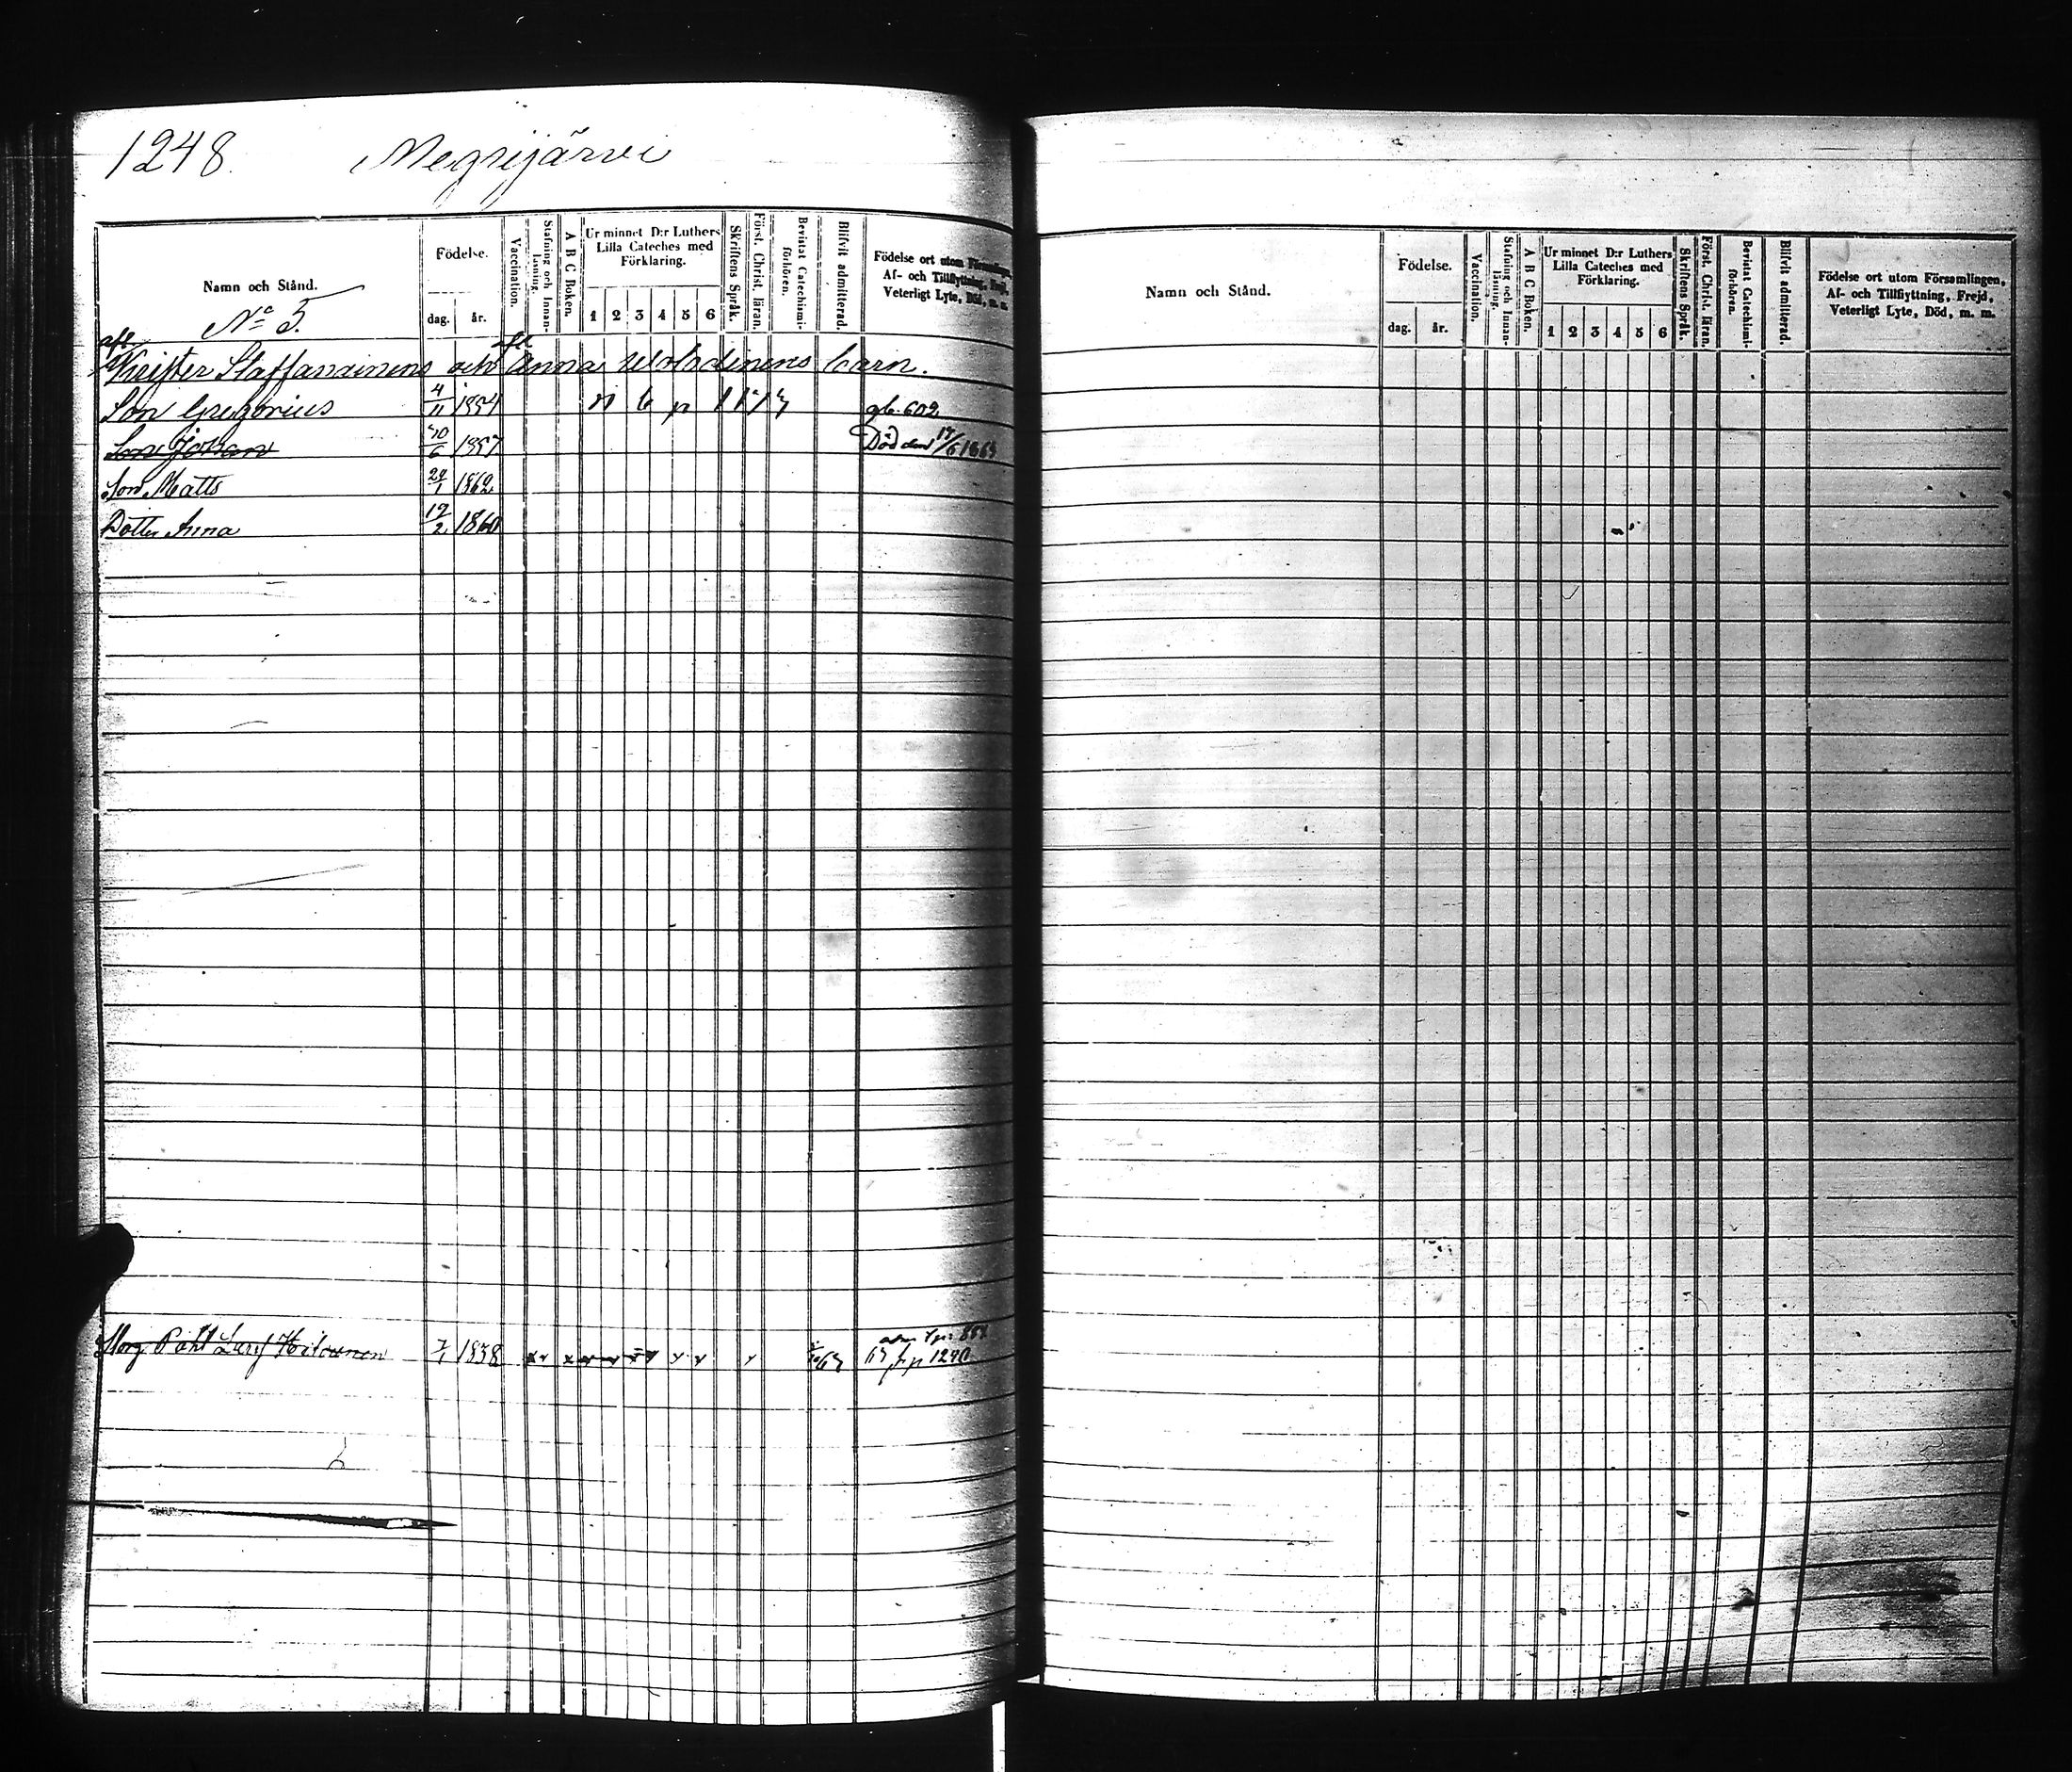 1248. Megrijärvi
Namn och Stånd.
Födelse.
dag. år.
Vaccination.
Stafning och Innanläsning.
A B C Boken.
Ur minnet D:r Luthers Lilla Cateches med Förklaring.
1 2 3 4 5 6
Skriftens Språk.
Först. Christ. läran.
Bevistat Catechismiförhören.
Blifvit admitterad.
Födelse ort utom Församlingen,
Af- och Tillflyttning, Frejd,
Veterligt Lyte, Död, m. m.
No 5.
afl. afl.
Krister Staffanainens och Anna barn.
Son Gregorius 4/11 1854 gb. 602
Son Johan 10/6 1857 Död den 17/5 1865
Son Matts 24/1 1862
Dotter Anna 12/2 1860
Påhl Hiltunen 7/1 1838 x x x x x x x x 1240
Namn och Stånd.
Födelse.
dag. år.
Vaccination.
Stafning och Innanläsning.
A B C Boken.
Ur minnet D:r Luthers Lilla Cateches med Förklaring.
1 2 3 4 5 6
Skriftens Språk.
Först. Christ. läran.
Bevistat Catechismiförhören.
Blifvit admitterad.
Födelse ort utom Församlingen,
Af- och Tillflyttning, Frejd,
Veterligt Lyte, Död, m. m.